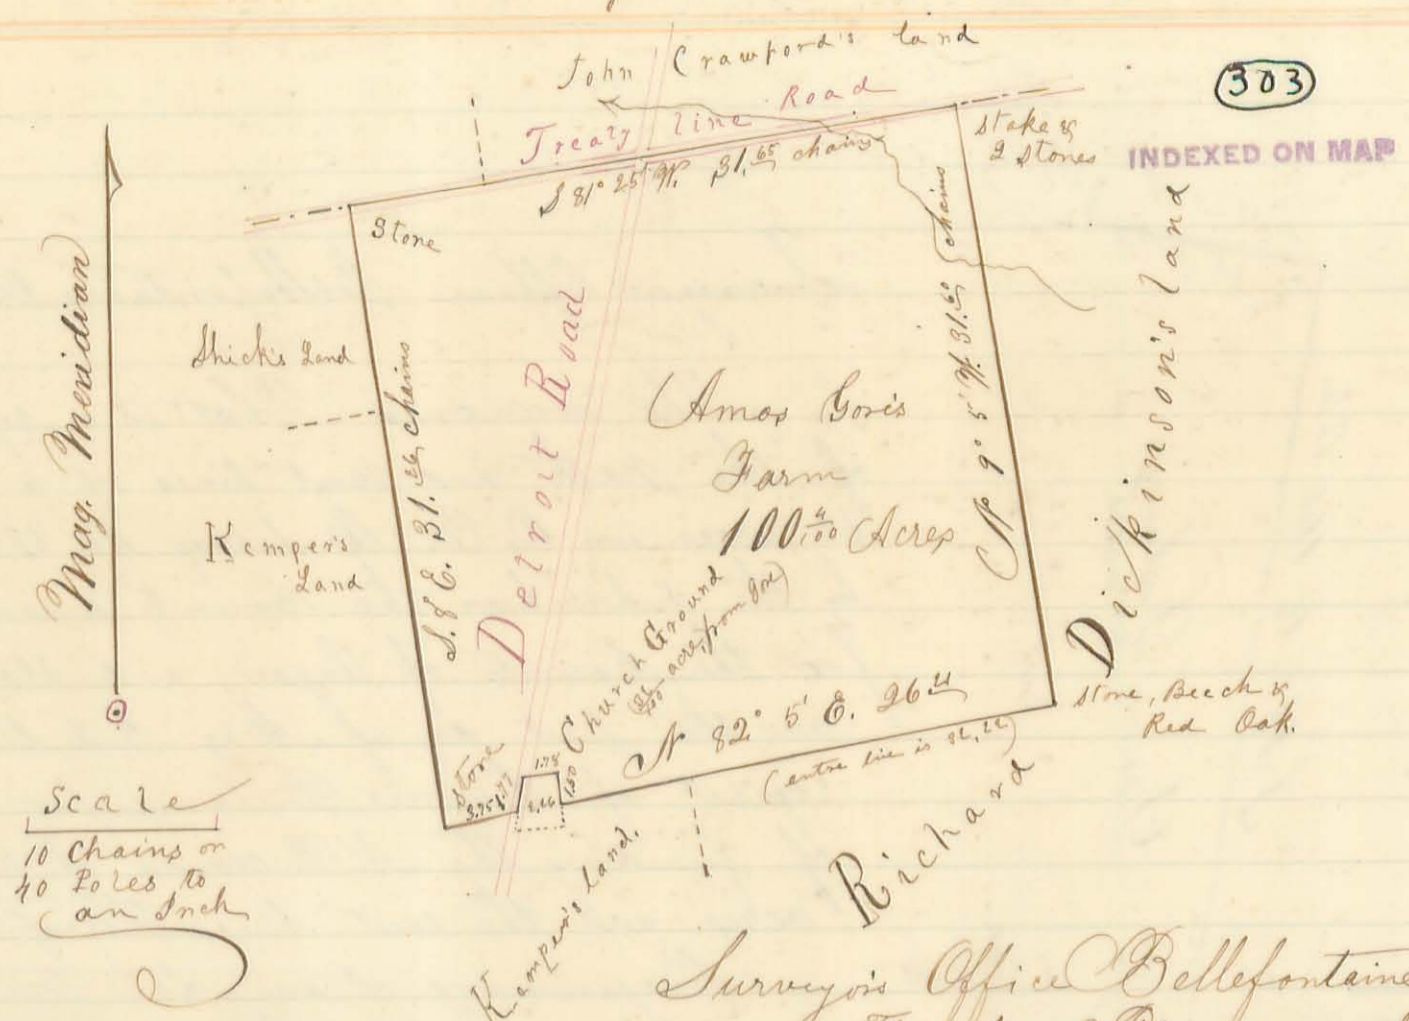 John Crawford's land
303
INDEXED ON MAP
Treaty line Road
S 81° 25' W. 31.65 chains
Stake &
2 Stones
Stone
Mag. Meridian
Shick's Land
Kemper's
Land
31. chains
Detroit Road
Amos Gore's
Farm
100 4/100 Acres
N 9° 5' W. 31.60 chains
Richard Dickinson's land
Church Ground
acre from Gore)
N 82° 5' E. 26.21
(entire line is
Stone, Beech &
Red Oak.
Stone
3.75
1.77
1.78
1.50
2.26
Kemper's land.
Scale
10 Chains or
40 Poles to
an Inch
Surveyor's Office Bellefontaine